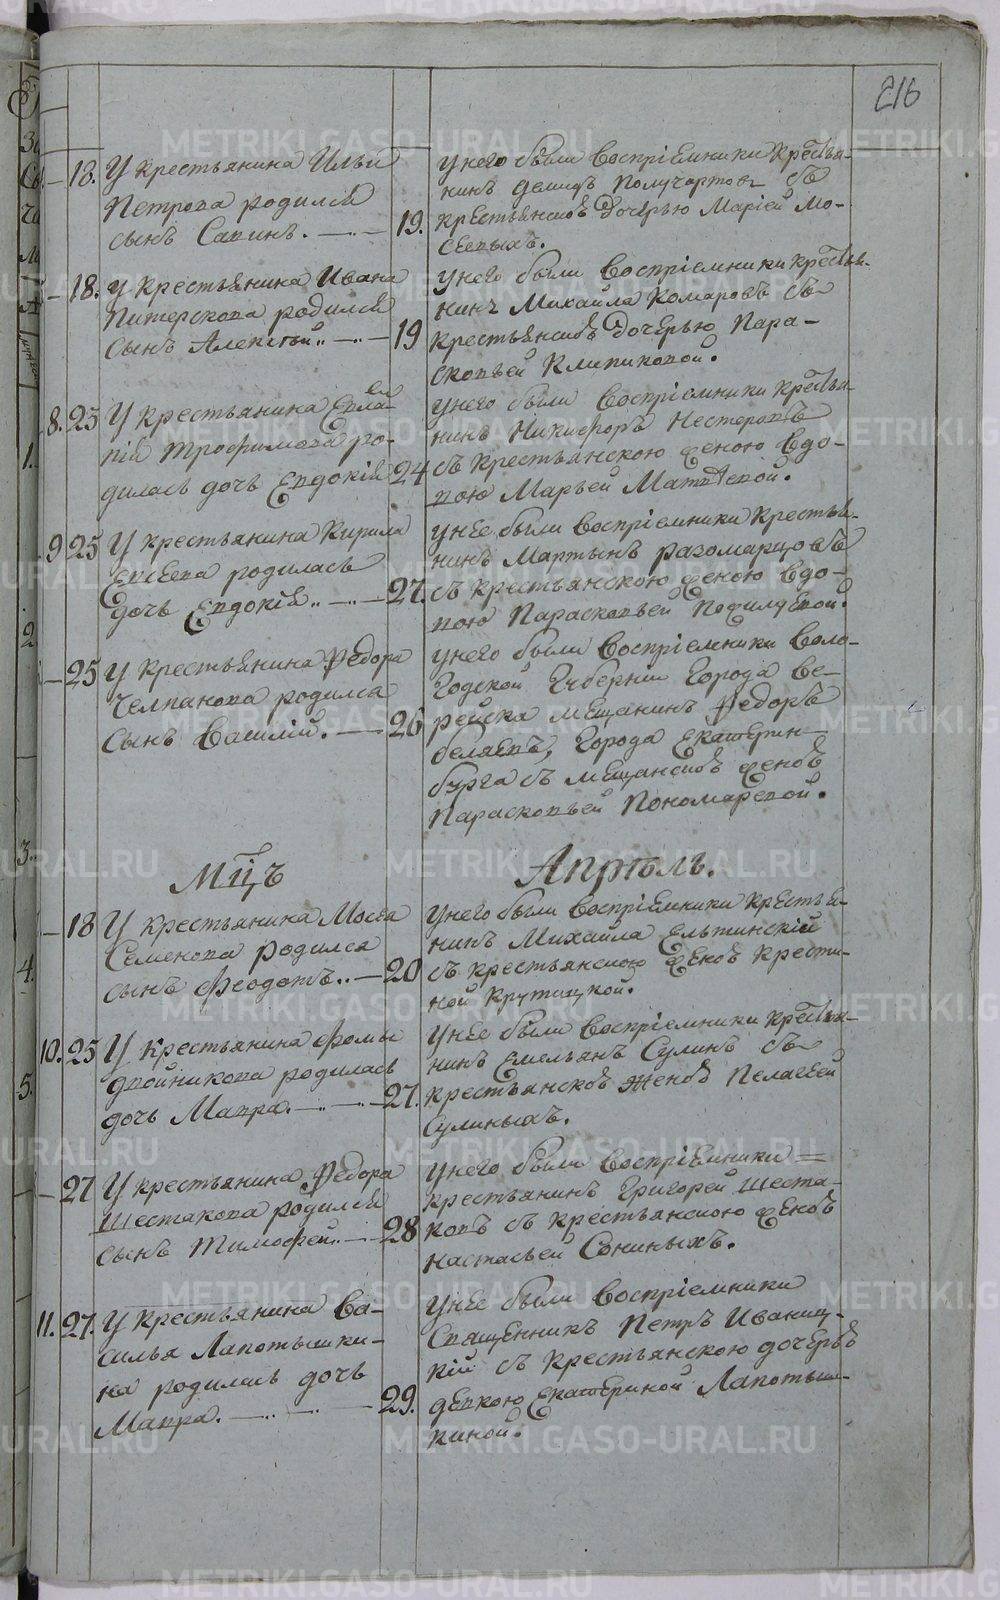 216
18. У крестьянина Ильи
Петрова родился
сынъ Савинъ. 19.
у него были воспріемники крестья-
нинъ Демидъ Получартовъ съ
крестьянскою дочерью Маріей Мо-
сеевыхъ.
18. У крестьянина Ивана
Питерскова родился
сынъ Алексѣй. 19
у него были воспріемники крестья-
нинъ Михайла Комаровъ съ
крестьянскою дочерью Пара-
сковьей Клипиковой.
8. 23 У крестьянина
Трофимова ро-
дилась дочь Евдокія 24
у него были воспріемники крестья-
нинъ Никифоръ Нестеровъ
съ крестьянскою женою вдо-
вою Марьей Матвѣевой.
9 25 У крестьянина Кирила
Евсеева родилась
дочь Евдокія. 27.
у нее были воспріемники крестья-
нинъ Мартынъ
съ крестьянскою женою вдо-
вою Парасковьей
25 У крестьянина Федора
Челпанова родился
сынъ Василій. 26
у него были воспріемники Воло-
годской Губерніи Города Ве-
рейска мещанинъ Федоръ
Беляевъ, Города Екатерин-
бурга съ мещанскою женою
Парасковьей Пономаревой.
Мцъ Апрѣль.
18 У крестьянина Мосея
Семенова родился
сынъ Феодотъ. 20
у него были воспріемники крестья-
нинъ Михайла Ельтинскій
съ крестьянскою женою Крести-
ной Крутицкой.
10. 25 У крестьянина Фомы
Двойникова родилась
дочь Мавра. 27.
у нее были воспріемники крестья-
нинъ Емельянъ Сулинъ съ
крестьянскою женою Пелагеей
Сулиныхъ.
27 У крестьянина Федора
Шестакова родился
сынъ Тимофей. 28
у него были воспріемники
крестьянинъ Григорей Шеста-
ковъ съ крестьянскою женою
Настасьей Сониныхъ.
11. 27. У крестьянина Ва-
силья Лапотышки-
на родилась дочь
Мавра. 29.
у нее были воспріемники
Священникъ Петръ Иваниц-
кій съ крестьянскою дочерью
девкою Екатериной Лапотыш-
киной.
METRIKI.GASO-URAL.RU